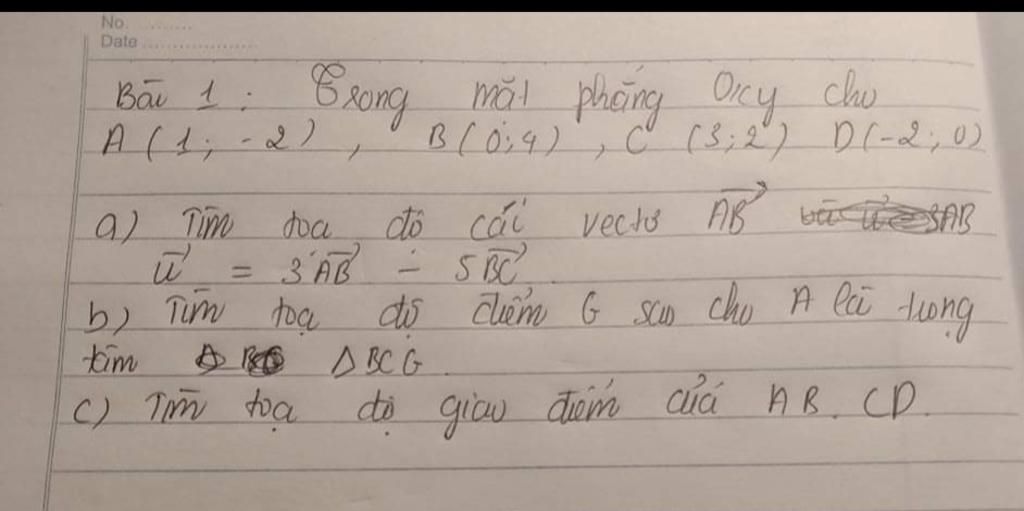 No. ............
Date .....................
Bài 1 : Trong mặt phẳng Oxy cho
A (1; -2) , B (0; 4) , C (3; 2) D (-2; 0)
a) Tìm toạ độ các vectơ AB
u = 3 AB - 5 BC
b) Tìm toạ độ điểm G sao cho A là trọng
tâm Δ BCG.
c) Tìm toạ độ giao điểm của AB. CD.